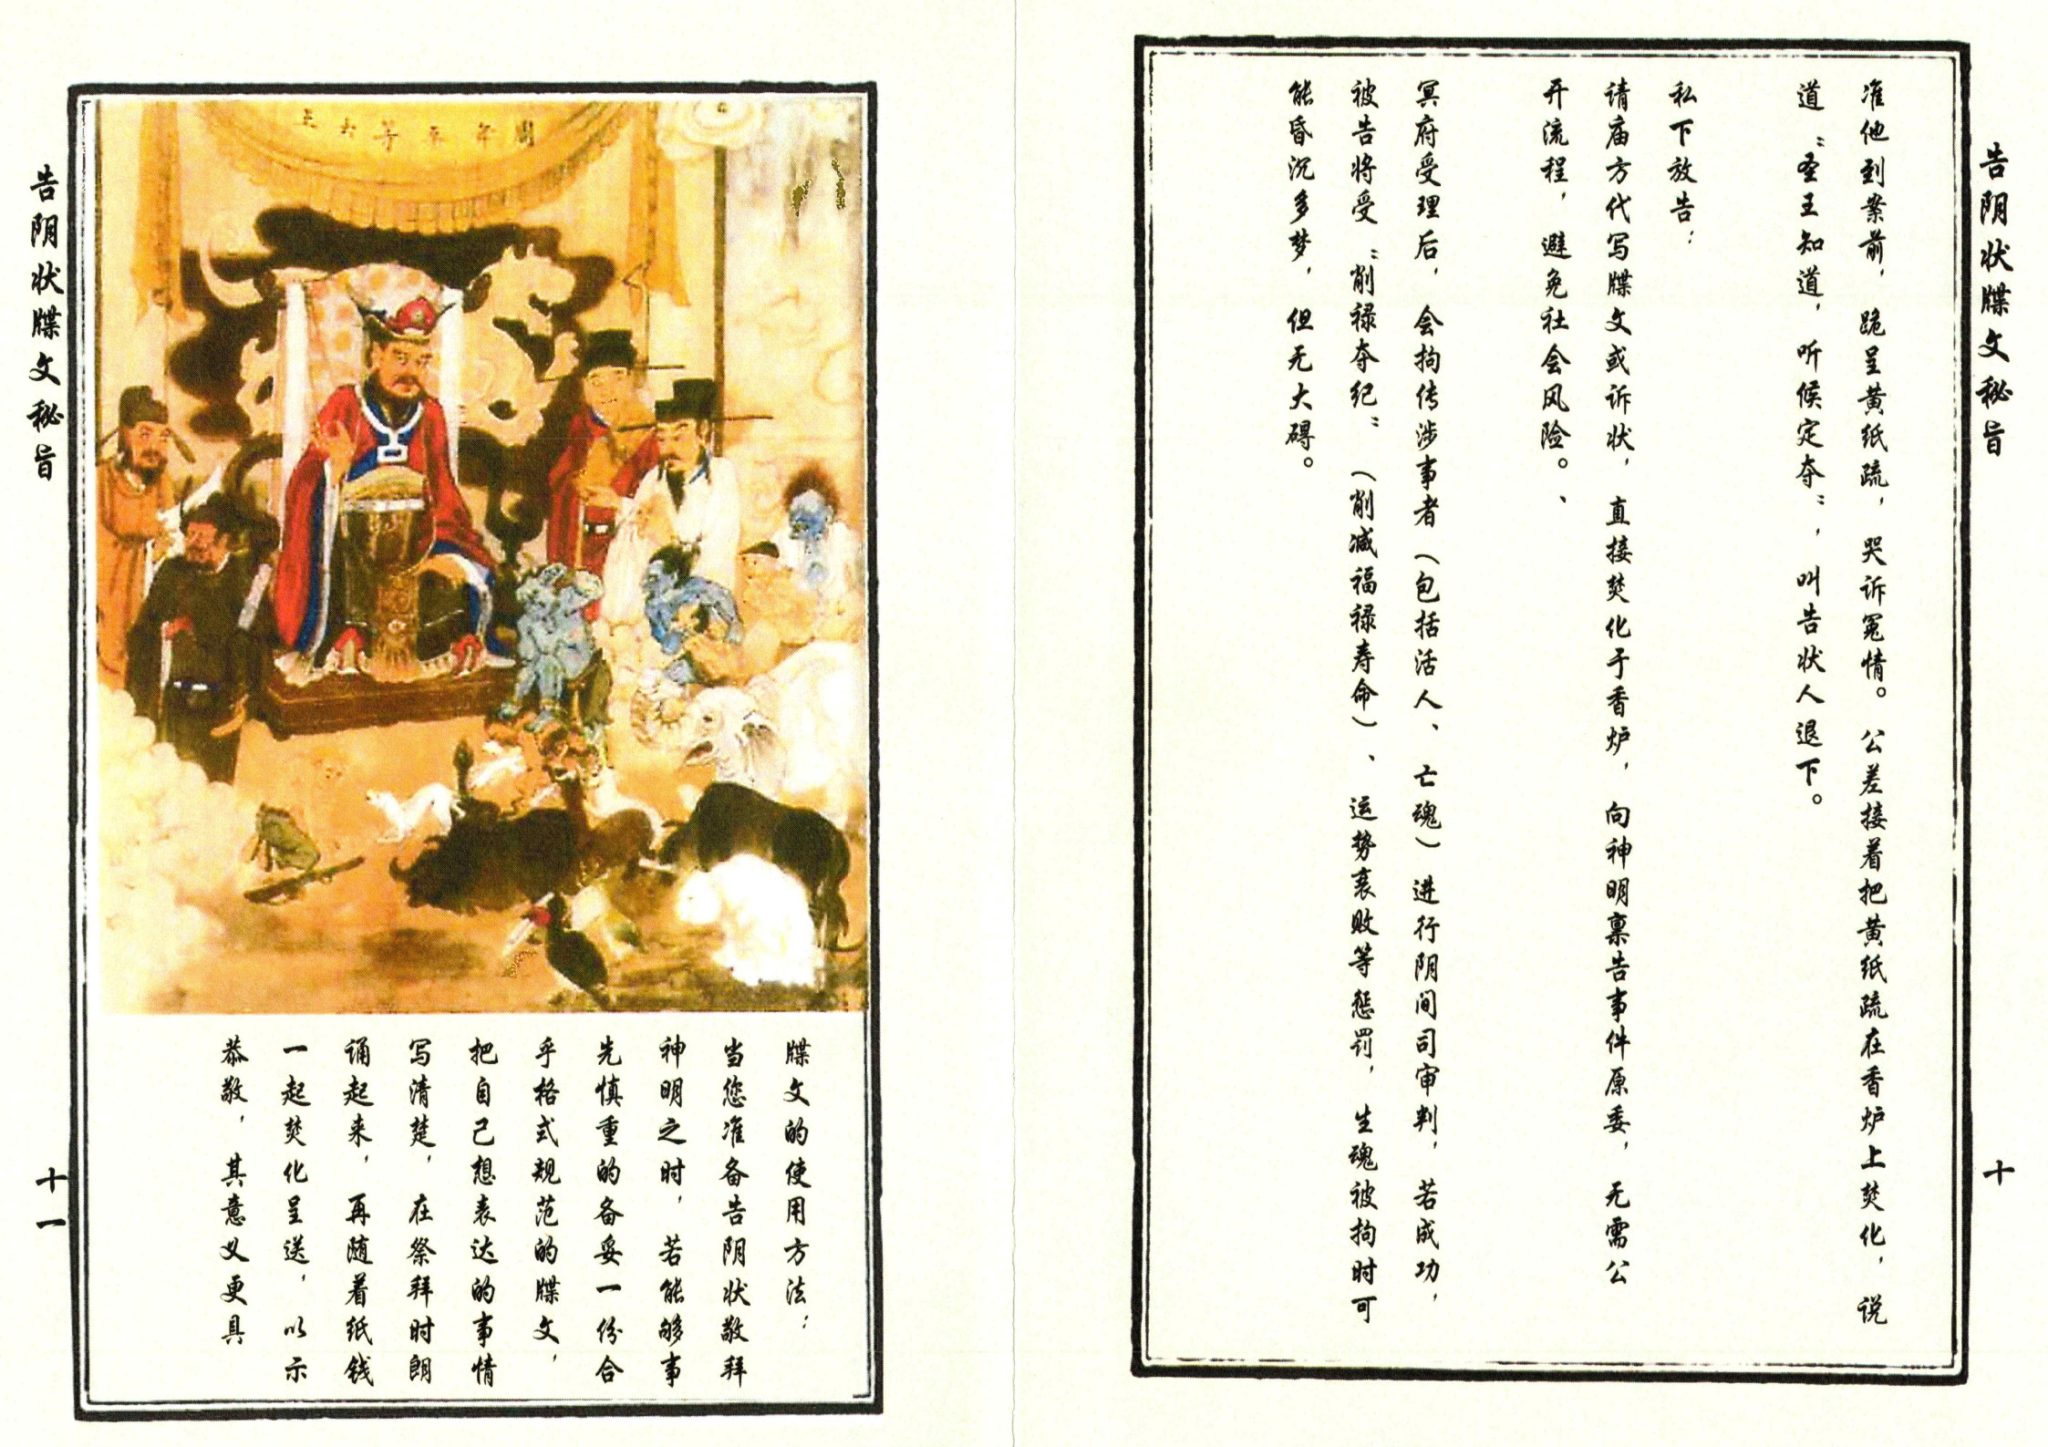 告阴状牒文秘旨
准他到案前，跪呈黄纸疏，哭诉冤情。公差接着把黄纸疏在香炉上焚化，说
道“圣王知道，听候定夺”，叫告状人退下。
私下放告：
请庙方代写牒文或诉状，直接焚化于香炉，向神明禀告事件原委，无需公
开流程，避免社会风险。、
冥府受理后，会拘传涉事者（包括活人、亡魂）进行阴间司审判，若成功，
被告将受“削禄夺纪”（削减福禄寿命）、运势衰败等惩罚，生魂被拘时可
能昏沉多梦，但无大碍。
十
王大等平年周
牒文的使用方法：
当您准备告阴状敬拜
神明之时，若能够事
先慎重的备妥一份合
乎格式规范的牒文，
把自己想表达的事情
写清楚，在祭拜时朗
诵起来，再随着纸钱
一起焚化呈送，以示
恭敬，其意义更具
告阴状牒文秘旨
十一